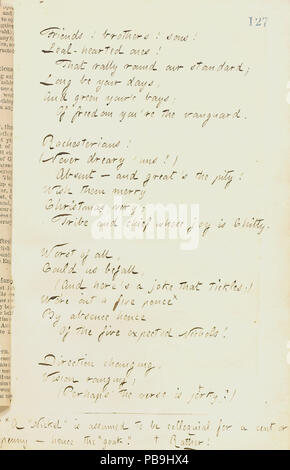 127
Friends! brothers! sons!
Leal-hearted ones!
That rally round our standard;
Long be your days,
And green your bays,
Of freedom you're the vanguard.
Rochesterians!
(Never dreary 'uns!)
Absent – and great's the pity!
Wish them merry
Christmas, very;
Tribe and chief whose joy is Chitty.
Worst of all,
Could us befall,
(And here's a joke that tickles:)
Were out a five pence*
By absence hence
Of the five expected Nichols!
Direction changing,
Vision ranging,
(Perhaps the verse is forty?)
*A "Nickel" is assumed to be colloquial for a cent or
penny – hence the "goak"! † Rather!
alamy
Image ID: PB9HX4
www.alamy.com